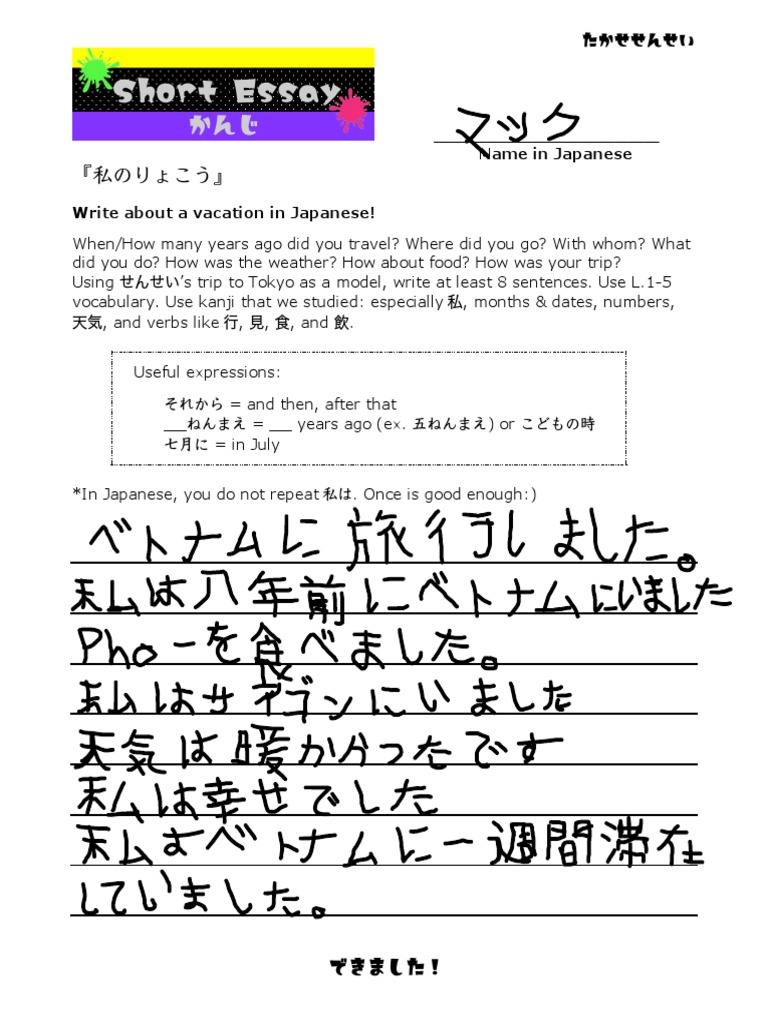 たかせせんせい
Short Essay
かんじ
マック
Name in Japanese
『私のりょこう』
Write about a vacation in Japanese!
When/How many years ago did you travel? Where did you go? With whom? What
did you do? How was the weather? How about food? How was your trip?
Using せんせい's trip to Tokyo as a model, write at least 8 sentences. Use L.1-5
vocabulary. Use kanji that we studied: especially 私, months & dates, numbers,
天気, and verbs like 行, 見, 食, and 飲.
Useful expressions:
それから = and then, after that
___ねんまえ = ___ years ago (ex. 五ねんまえ) or こどもの時
七月に = in July
*In Japanese, you do not repeat 私は. Once is good enough:)
ベトナムに旅行しました。
私は八年前にベトナムにいました
Phoーを食べました。
私はサイゴンにいました
天気は暖かかったです
私は幸せでした
私はベトナムに一週間滞在
していました。
できました！